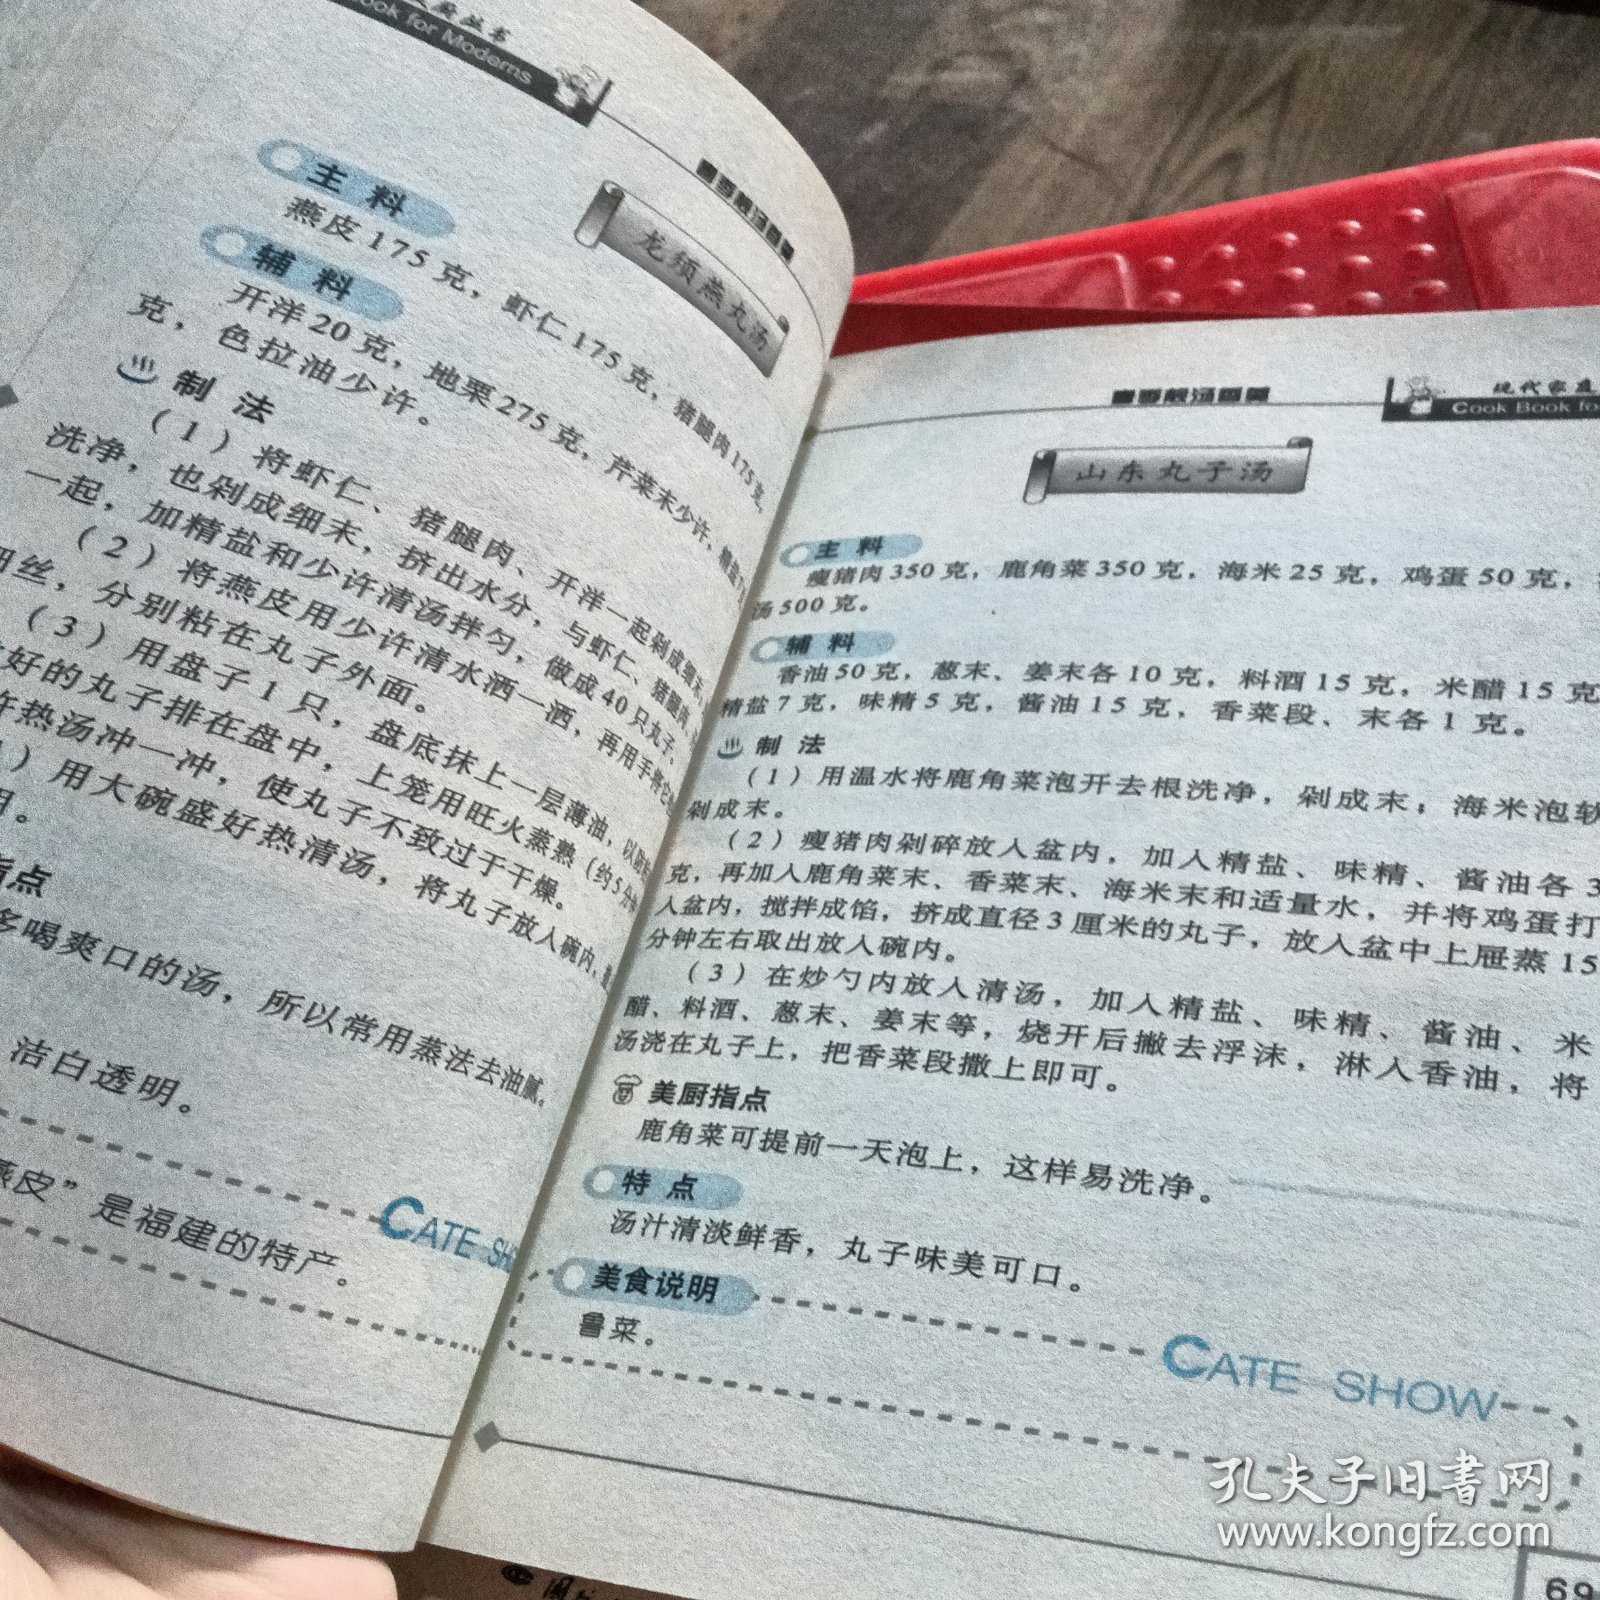 Cook for Moderns
春季靓汤荟萃
龙须燕丸汤
主料
燕皮175克，虾仁175克，猪腿肉175克，
辅料
开洋20克，地栗275克，芹菜末少许，
克，色拉油少许。
制法
（1）将虾仁、猪腿肉、开洋一起剁成细末，
洗净，也剁成细末，挤出水分，与虾仁、猪腿肉
一起，加精盐和少许清汤拌匀，做成40只丸子。
（2）将燕皮用少许清水洒一洒，再用手将它
细丝，分别粘在丸子外面。
（3）用盘子1只，盘底抹上一层薄油，以防
好的丸子排在盘中，上笼用旺火蒸熟（约5分钟
许热汤冲一冲，使丸子不致过于干燥。
）用大碗盛好热清汤，将丸子放入碗内，
用。
指点
多喝爽口的汤，所以常用蒸法去油腻。
洁白透明。
燕皮”是福建的特产。
CATE SHO
春季靓汤荟萃
现代家庭
Cook Book fo
山东丸子汤
主料
瘦猪肉350克，鹿角菜350克，海米25克，鸡蛋50克，
汤500克。
辅料
香油50克，葱末、姜末各10克，料酒15克，米醋15克
精盐7克，味精5克，酱油15克，香菜段、末各1克。
制法
（1）用温水将鹿角菜泡开去根洗净，剁成末；海米泡软
剁成末。
（2）瘦猪肉剁碎放入盆内，加入精盐、味精、酱油各3
克，再加入鹿角菜末、香菜末、海米末和适量水，并将鸡蛋打
入盆内，搅拌成馅，挤成直径3厘米的丸子，放入盆中上屉蒸15
分钟左右取出放入碗内。
（3）在炒勺内放入清汤，加入精盐、味精、酱油、米
醋、料酒、葱末、姜末等，烧开后撇去浮沫，淋入香油，将
汤浇在丸子上，把香菜段撒上即可。
美厨指点
鹿角菜可提前一天泡上，这样易洗净。
特点
汤汁清淡鲜香，丸子味美可口。
美食说明
鲁菜。
CATE SHOW
69
孔夫子旧书网
www.kongfz.com